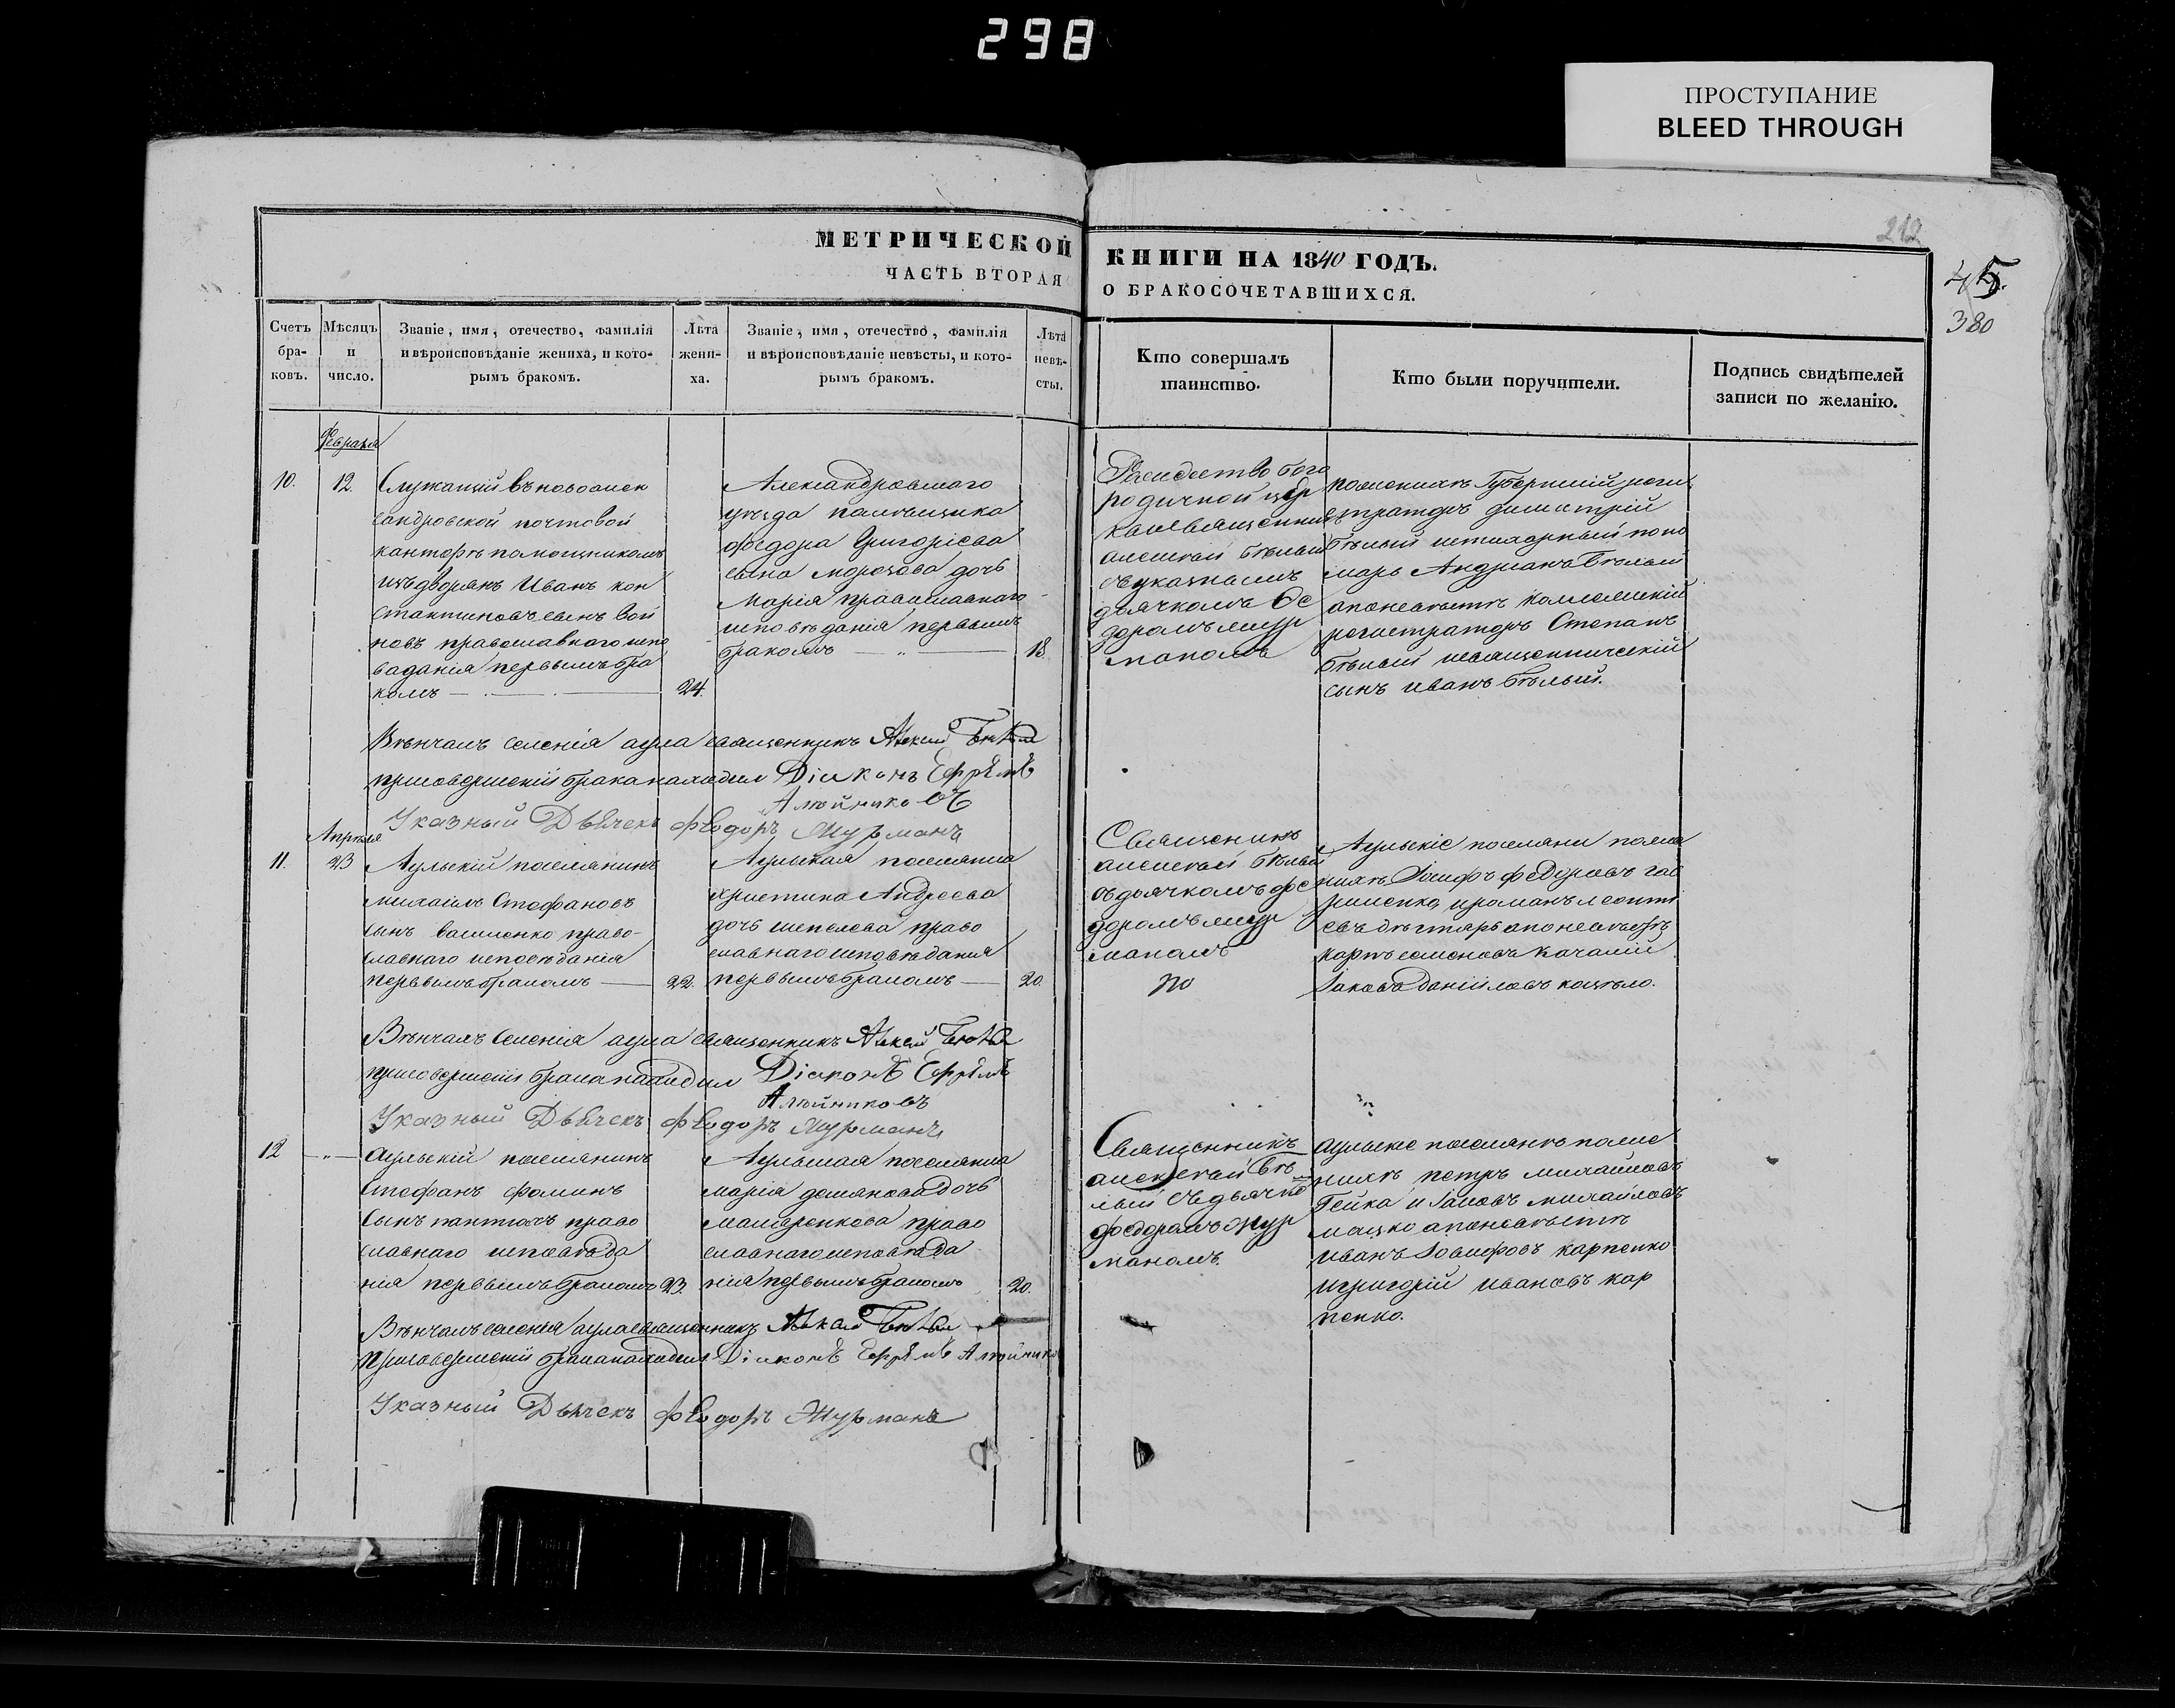 298
ПРОСТУПАНИЕ
BLEED THROUGH
МЕТРИЧЕСКОЙ КНИГИ НА 1840 ГОДЪ.
ЧАСТЬ ВТОРАЯ О БРАКОСОЧЕТАВШИХСЯ.
212
45.
380
Счетъ бра-ковъ.
Мѣсяцъ и число.
Званіе, имя, отечество, фамилія
и вѣроисповѣданіе жениха, и кото-
рымъ бракомъ.
Лѣта жени-ха.
Званіе, имя, отечество, фамилія
и вѣроисповѣданіе невѣсты, и кото-
рымъ бракомъ.
Лѣта невѣ-сты.
Кто совершалъ
таинство.
Кто были поручители.
Подпись свидѣтелей
записи по желанію.
Февраля
10.
12.
Служащій въ новоалек
сандровской почтовой
канторѣ помощникомъ
изъ дворянъ Иванъ кон
стантиновъ сынъ Вой
новъ православнаго испо
веданія первымъ бра
комъ
24.
Александровскаго
уѣзда памѣщика
Федора Григоріева
сына Морозова дочь
Марія православнаго
исповѣданія первымъ
бракомъ
18.
Рождество Бого
родичной цер
кви священникъ
алексѣй Бѣлый
съ указнымъ
дьячкомъ Фе
доромъ Мур
маномъ
по женихѣ Губернскій реги
страторъ димитрій
Бѣлый и пономарь Андріанъ Бѣлый
а по невѣстѣ коллежскій
регистраторъ Степанъ
Бѣлый и священническій
сынъ иванъ Бѣлый.
Вѣнчалъ селенія аула священникъ Алексѣй Бѣлый
при совершеніи брака находился Діаконъ Ефремъ
Алейниковъ
Указный Дьячекъ Феодоръ Мурманъ
Апрѣля
11.
23
Аульскій поселянинъ
михаилъ Стефановъ
сынъ василенко право-
славнаго исповѣданія
первымъ бракомъ
22.
Аульская поселянка
христина Андреева
дочь шепелева право
славнаго исповѣданія
первымъ бракомъ
20.
Священникъ
алексѣй Бѣлый
съ дьячкомъ Фе
доромъ Мур
маномъ
Аульскіе поселяни по же
нихѣ Іосифъ Федоровъ гав
риленко, и романъ леонті
евъ дѣхтярь а по невѣстѣ
карпъ семеновъ качалій
Іаковъ даніиловъ
Вѣнчалъ селенія аула священникъ Алексѣй Бѣлый
при совершеніи брака находился Діаконъ Ефремъ
Алейниковъ
Указный Дьячекъ Феодоръ Мурманъ
12
Аульскій поселянинъ
Стефанъ Фоминъ
сынъ право
славнаго исповѣда
нія первымъ бракомъ
23.
Аульская поселянка
марія демянова дочь
макаренкова право
славнаго исповѣда
нія первымъ бракомъ
20.
Священникъ
алексѣй Бѣ
лый съ дьячко
федоромъ Мур
маномъ.
аульскіе поселянѣ по же
нихѣ петръ михайловъ
Гейка и Іаковъ михайловъ
мацко а по невѣстѣ
иванъ Іосифовъ карпенко
и григорій ивановъ кар
пенко.
Вѣнчалъ селенія аула священникъ Алексѣй Бѣлый
при совершеніи брака находился Діаконъ Ефремъ Алейников
Указный Дьячекъ Феодоръ Мурманъ